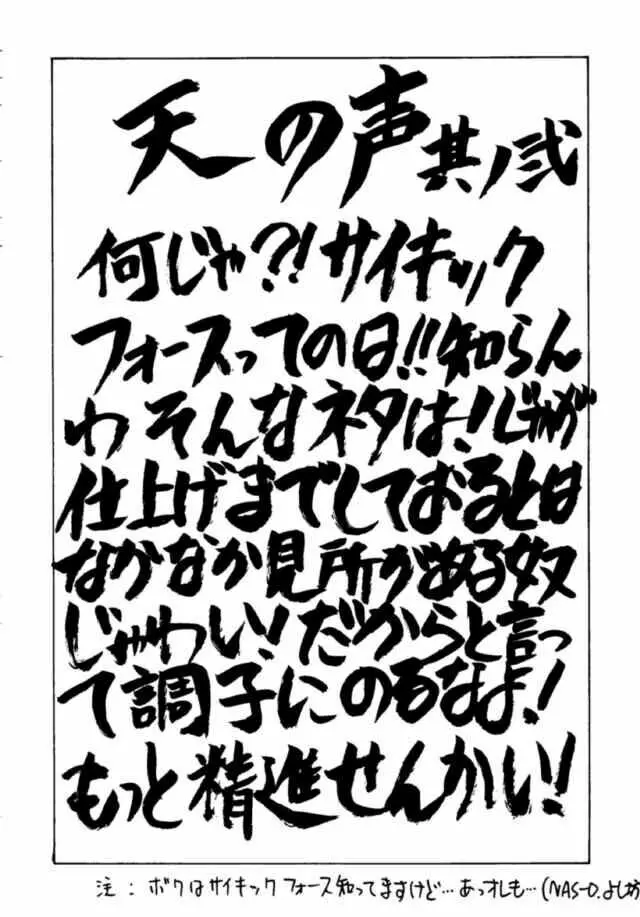 天の声 其ノ弐
何じゃ?!サイキック
フォースってのは!!知らん
わそんなネタは!じゃが
仕上げまでしておるとは
なかなか見所がある奴
じゃわい!だからと言っ
て調子にのるなよ!
もっと精進せんかい!
注:ボクはサイキックフォース知ってますけど…あっオレも…(NAS-O.よしお